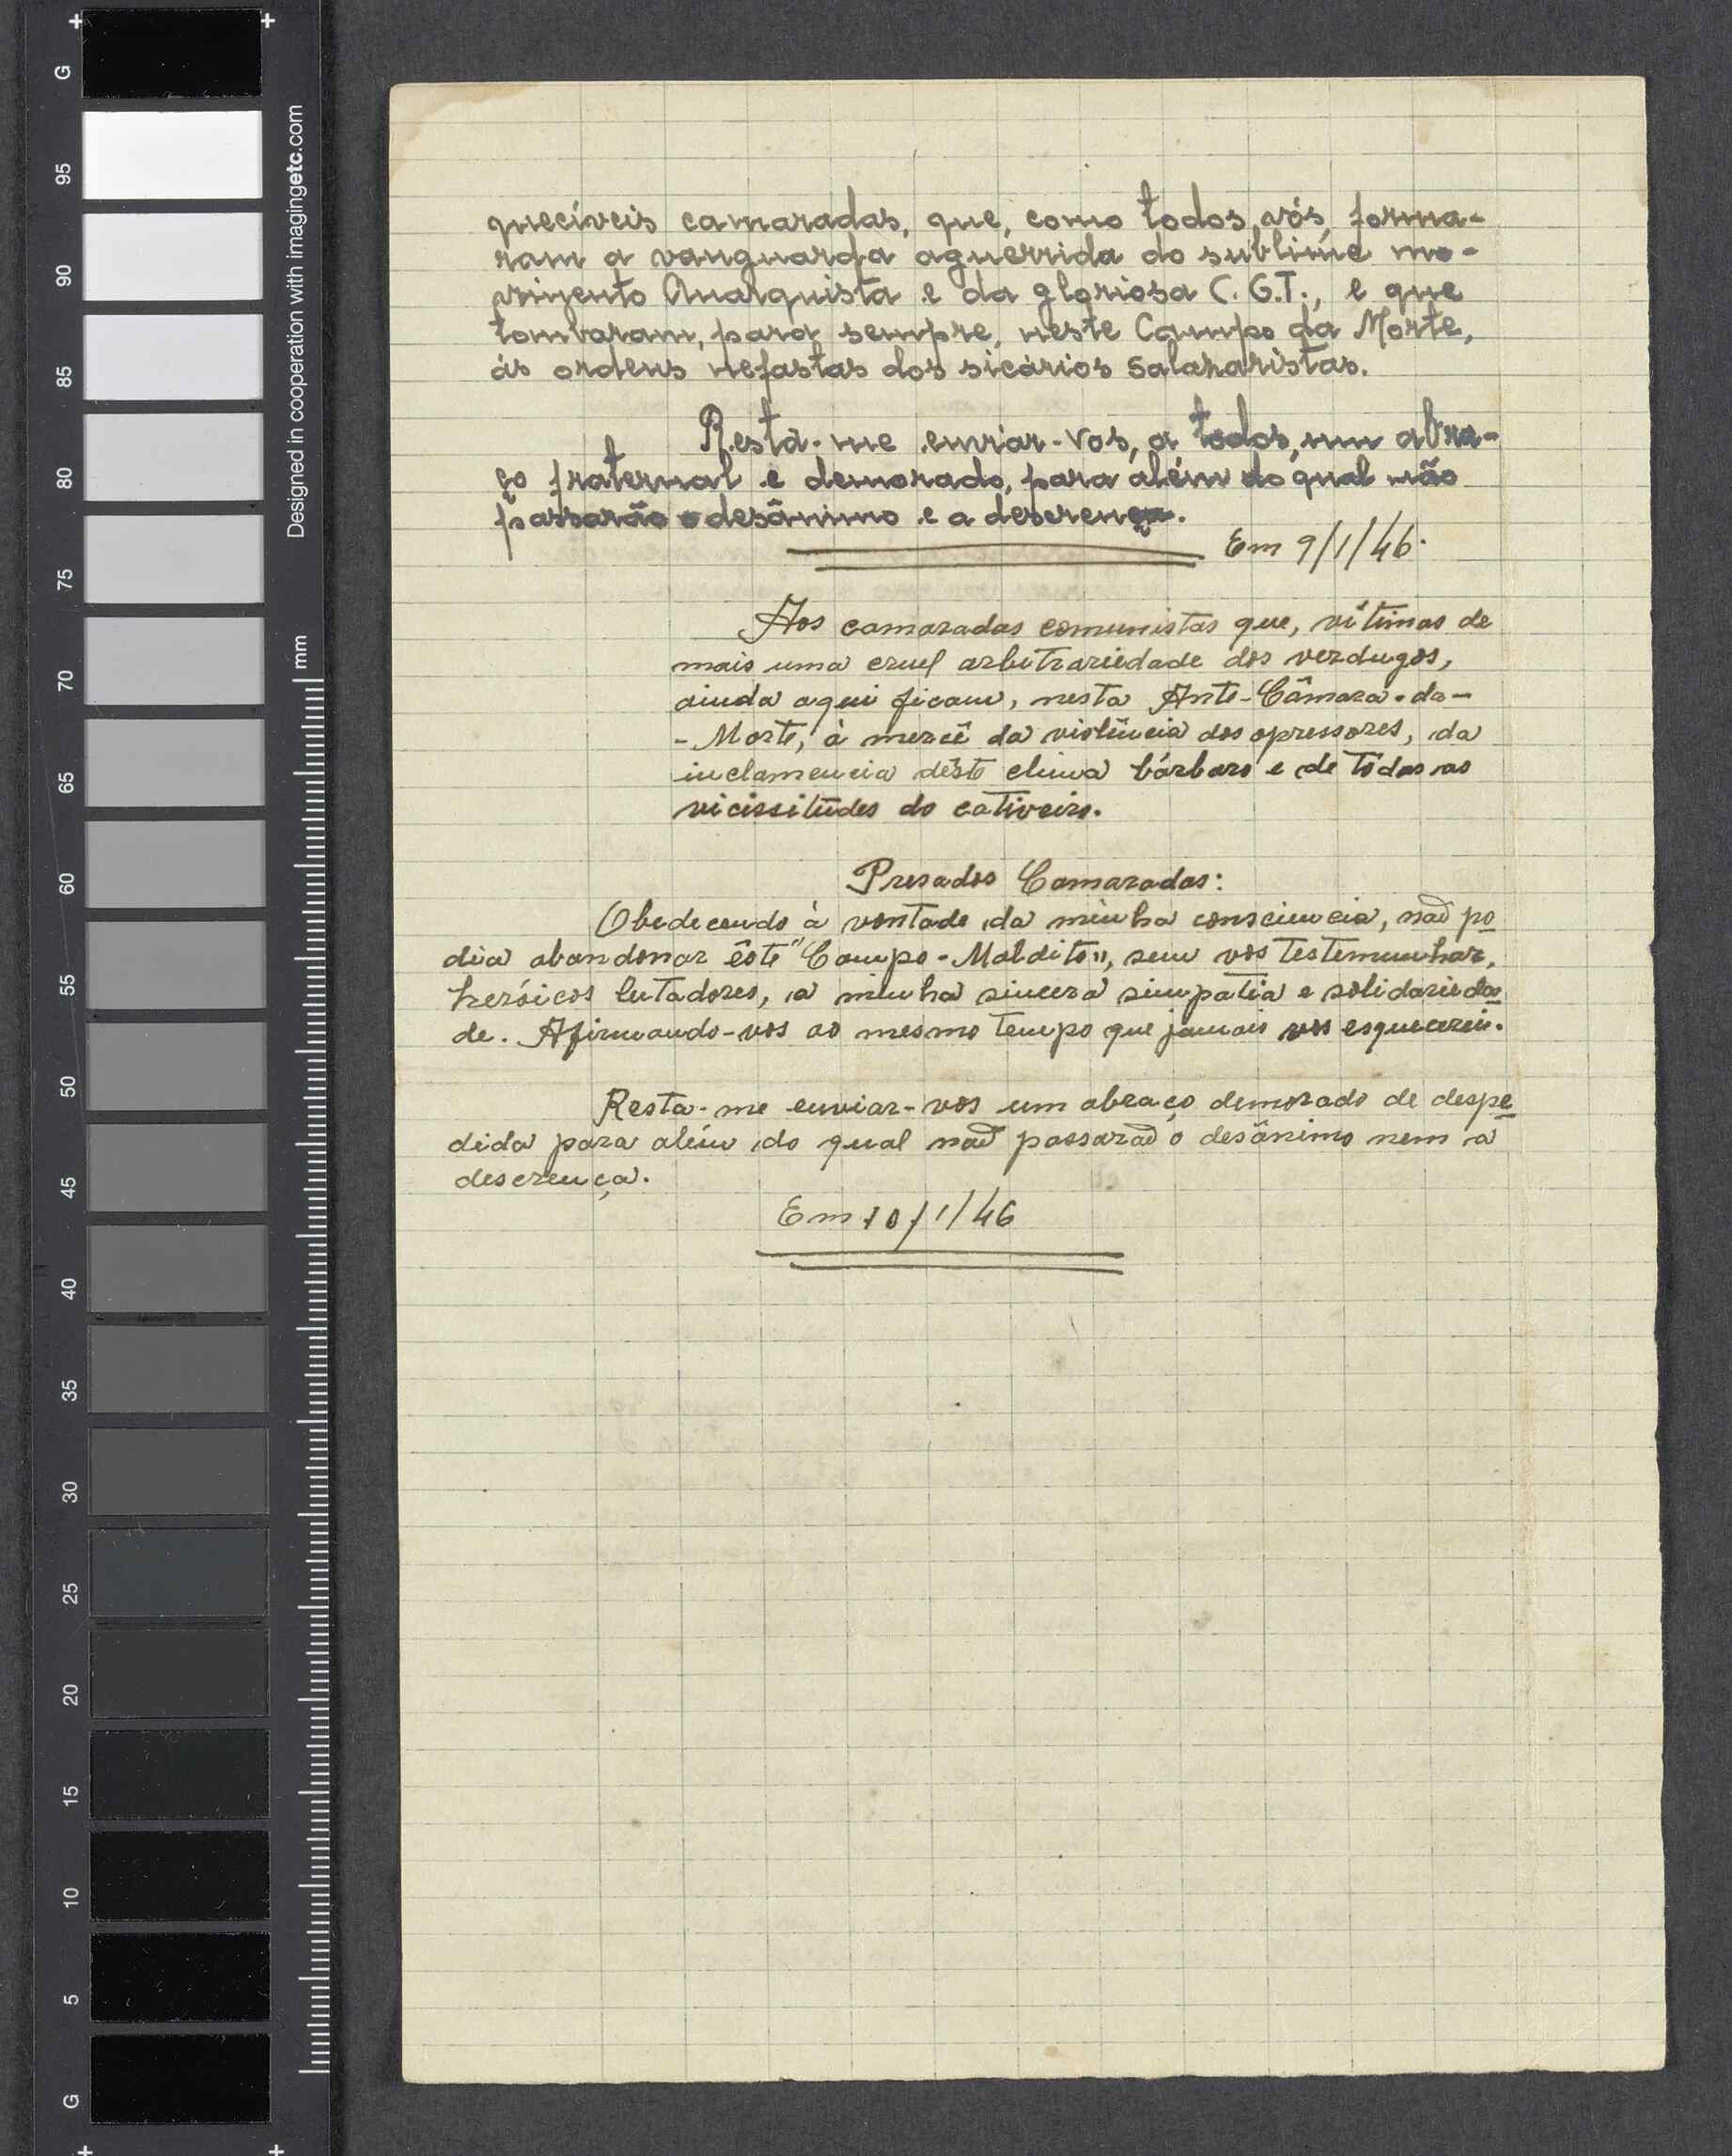 quecíveis camaradas, que, como todos vós, forma-
ram a vanguarda aguerrida do sublime mo-
vimento Anarquista e da gloriosa C.G.T., e que
tombaram, para sempre, neste Campo da Morte,
ás ordens nefastas dos sicários salazaristas.
Resta-me enviar-vos, a todos, um abra-
ço fraternal e demorado, para além do qual não
passarão o desânimo e a descrença.
Em 9/1/46.
Aos camaradas comunistas que, vítimas de
mais uma cruel arbitrariedade dos verdugos,
ainda aqui ficam, nesta Ante-Câmara-da-
-Morte, à mercê da violência dos opressores, da
inclamencia dêste clima bárbaro e de tôdas as
vicissitudes do cativeiro.
Presados Camaradas:
Obedecendo à vontade da minha consciencia, não po
dia abandonar êste "Campo-Maldito", sem vos testemunhar,
heróicos lutadores, a minha sincera simpatia e solidarieda
de. Afirmando-vos ao mesmo tempo que jamais vos esquecerei.
Resta-me enviar-vos um abraço demorado de despe
dida para além do qual não passarão o desânimo nem a
descrença.
Em 10/1/46
G
95
90
85
80
75
70
65
60
55
50
45
40
35
30
25
20
15
10
5
G
mm
Designed in cooperation with imagingetc.com